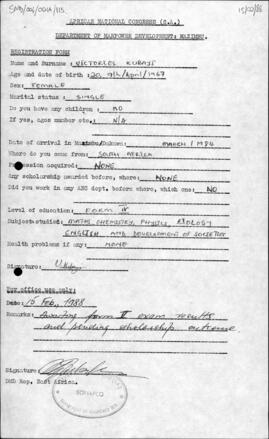 SMD/006/0014/115
15/02/88
AFRICAN NATIONAL CONGRESS (S.A.)
DEPARTMENT OF MANPOWER DEVELOPMENT: MAZIMBU.
REGISTRATION FORM
Name and Surname : VICTORIOL KUBAYI
Age and date of birth : 20, 9th/April/1967
Sex: FEMALE
Marital status : SINGLE
Do you have any children : NO
If yes, ages number etc. : N/A
Date of arrival in Mazimbu/Dakawa: MARCH/1984
Where do you come from: SOUTH AFRICA
Profession acquired: NONE
Any scholarship awarded before, where: NONE
Did you work in any ANC dept. before where, which one: NO
Level of education: FORM IV
Subjects studied: MATHS, CHEMISTRY, PHYSICS, BIOLOGY
ENGLISH AND DEVELOPMENT OF SOCIETIES
Health problems if any: NONE
Signature:
For office use only:
Date: 15 Feb. 1988
Remarks: Awaiting form V exam results
and pending scholarship outcome
Signature:
DMD Rep, East Africa.
SOMAFCO